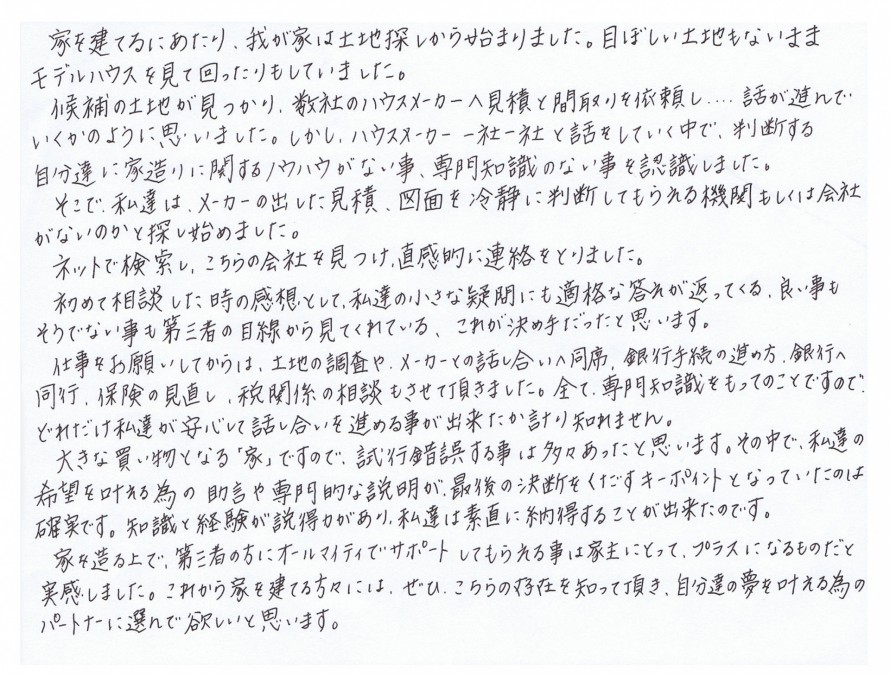 家を建てるにあたり、我が家は土地探しから始まりました。目ぼしい土地もないまま
モデルハウスを見て回ったりもしていました。
候補の土地が見つかり、数社のハウスメーカーへ見積と間取りを依頼し‥‥話が進んで
いくかのように思いました。しかし、ハウスメーカー 一社一社と話をしていく中で、判断する
自分達に家造りに関するノウハウがない事、専門知識のない事を認識しました。
そこで、私達は、メーカーの出した見積、図面を冷静に判断してもらえる機関もしくは会社
がないのかと探し始めました。
ネットで検索し、こちらの会社を見つけ、直感的に連絡をとりました。
初めて相談した時の感想として、私達の小さな疑問にも適格な答えが返ってくる、良い事も
そうでない事も第三者の目線から見てくれている、これが決め手だったと思います。
仕事をお願いしてからは、土地の調査や、メーカーとの話し合いへ同席、銀行手続の進め方、銀行へ
同行、保険の見直し、税関係の相談もさせて頂きました。全て、専門知識をもってのことですので、
どれだけ私達が安心して話し合いを進める事が出来たか計り知れません。
大きな買い物となる「家」ですので、試行錯誤する事は多々あったと思います。その中で、私達の
希望を叶える為の助言や専門的な説明が、最後の決断をくだすキーポイントとなっていたのは
確実です。知識と経験が説得力があり、私達は素直に納得することが出来たのです。
家を造る上で、第三者の方にオールマイティでサポートしてもらえる事は家主にとって、プラスになるものだと
実感しました。これから家を建てる方々には、ぜひ、こちらの存在を知って頂き、自分達の夢を叶える為の
パートナーに選んで欲しいと思います。